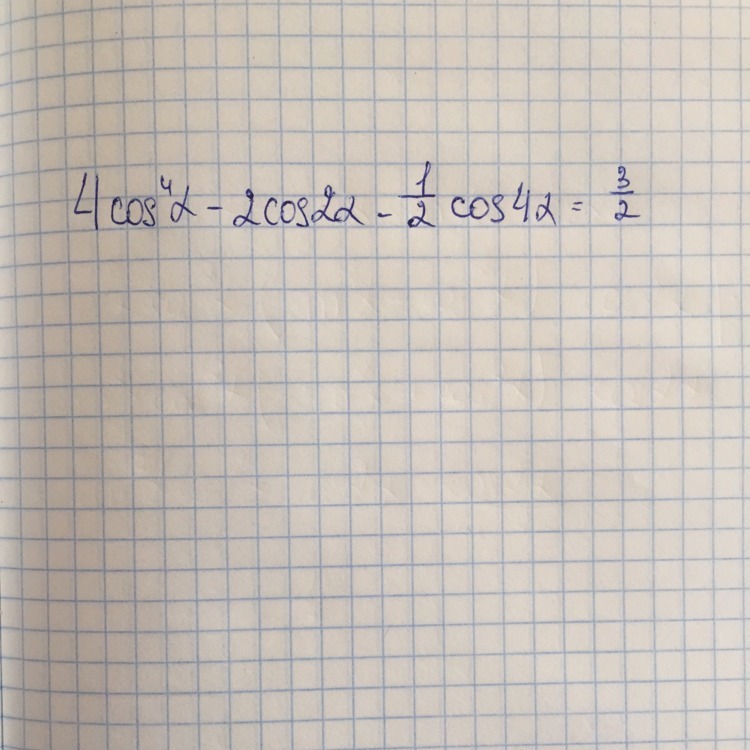 4cos⁴α - 2cos2α - 1/2 cos4α = 3/2